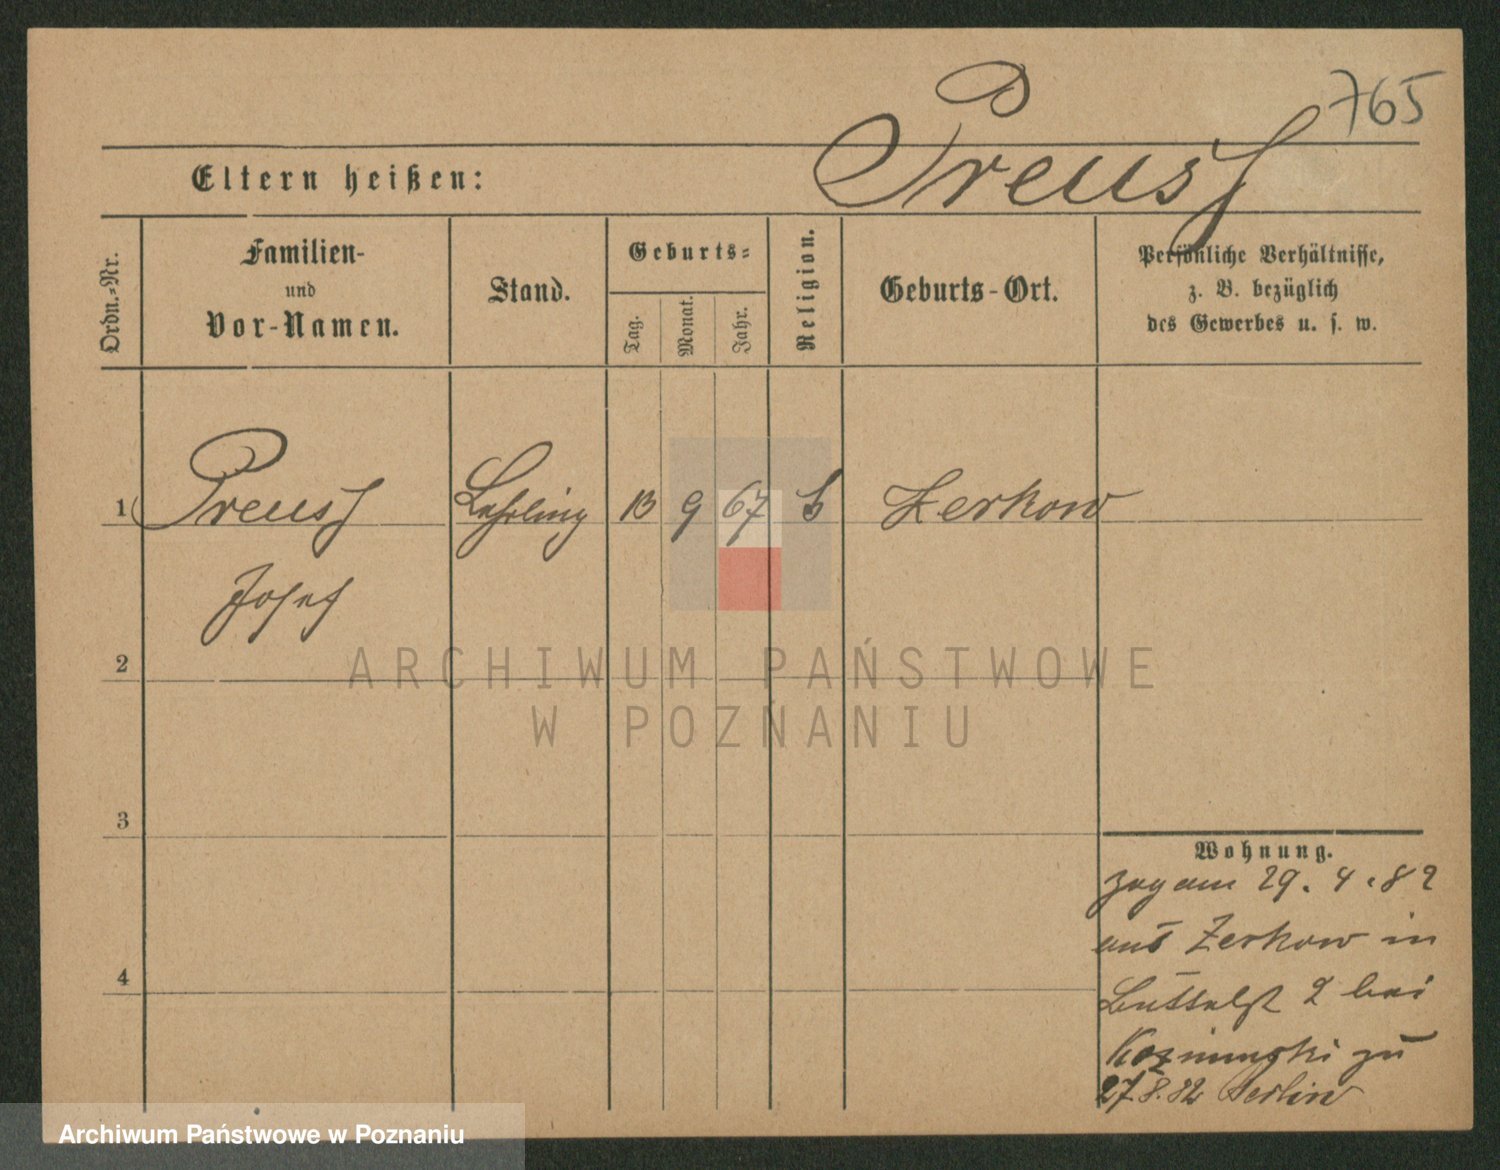 765
Preuss
Eltern heißen:
Ordn.-Nr.
Familien-
und
Vor-Namen.
Stand.
Geburts-
Tag.
Monat.
Jahr.
Religion.
Geburts-Ort.
Persönliche Verhältnisse,
z. B. bezüglich
des Gewerbes u. s. w.
1 Preuss Lehrling 13 9 67 Zerkow
Josef
2
3
4
Wohnung.
zog am 29. 4. 82
aus Zerkow in
2 bei
zu
27.8.82 Berlin
ARCHIWUM PAŃSTWOWE
W POZNANIU
Archiwum Państwowe w Poznaniu